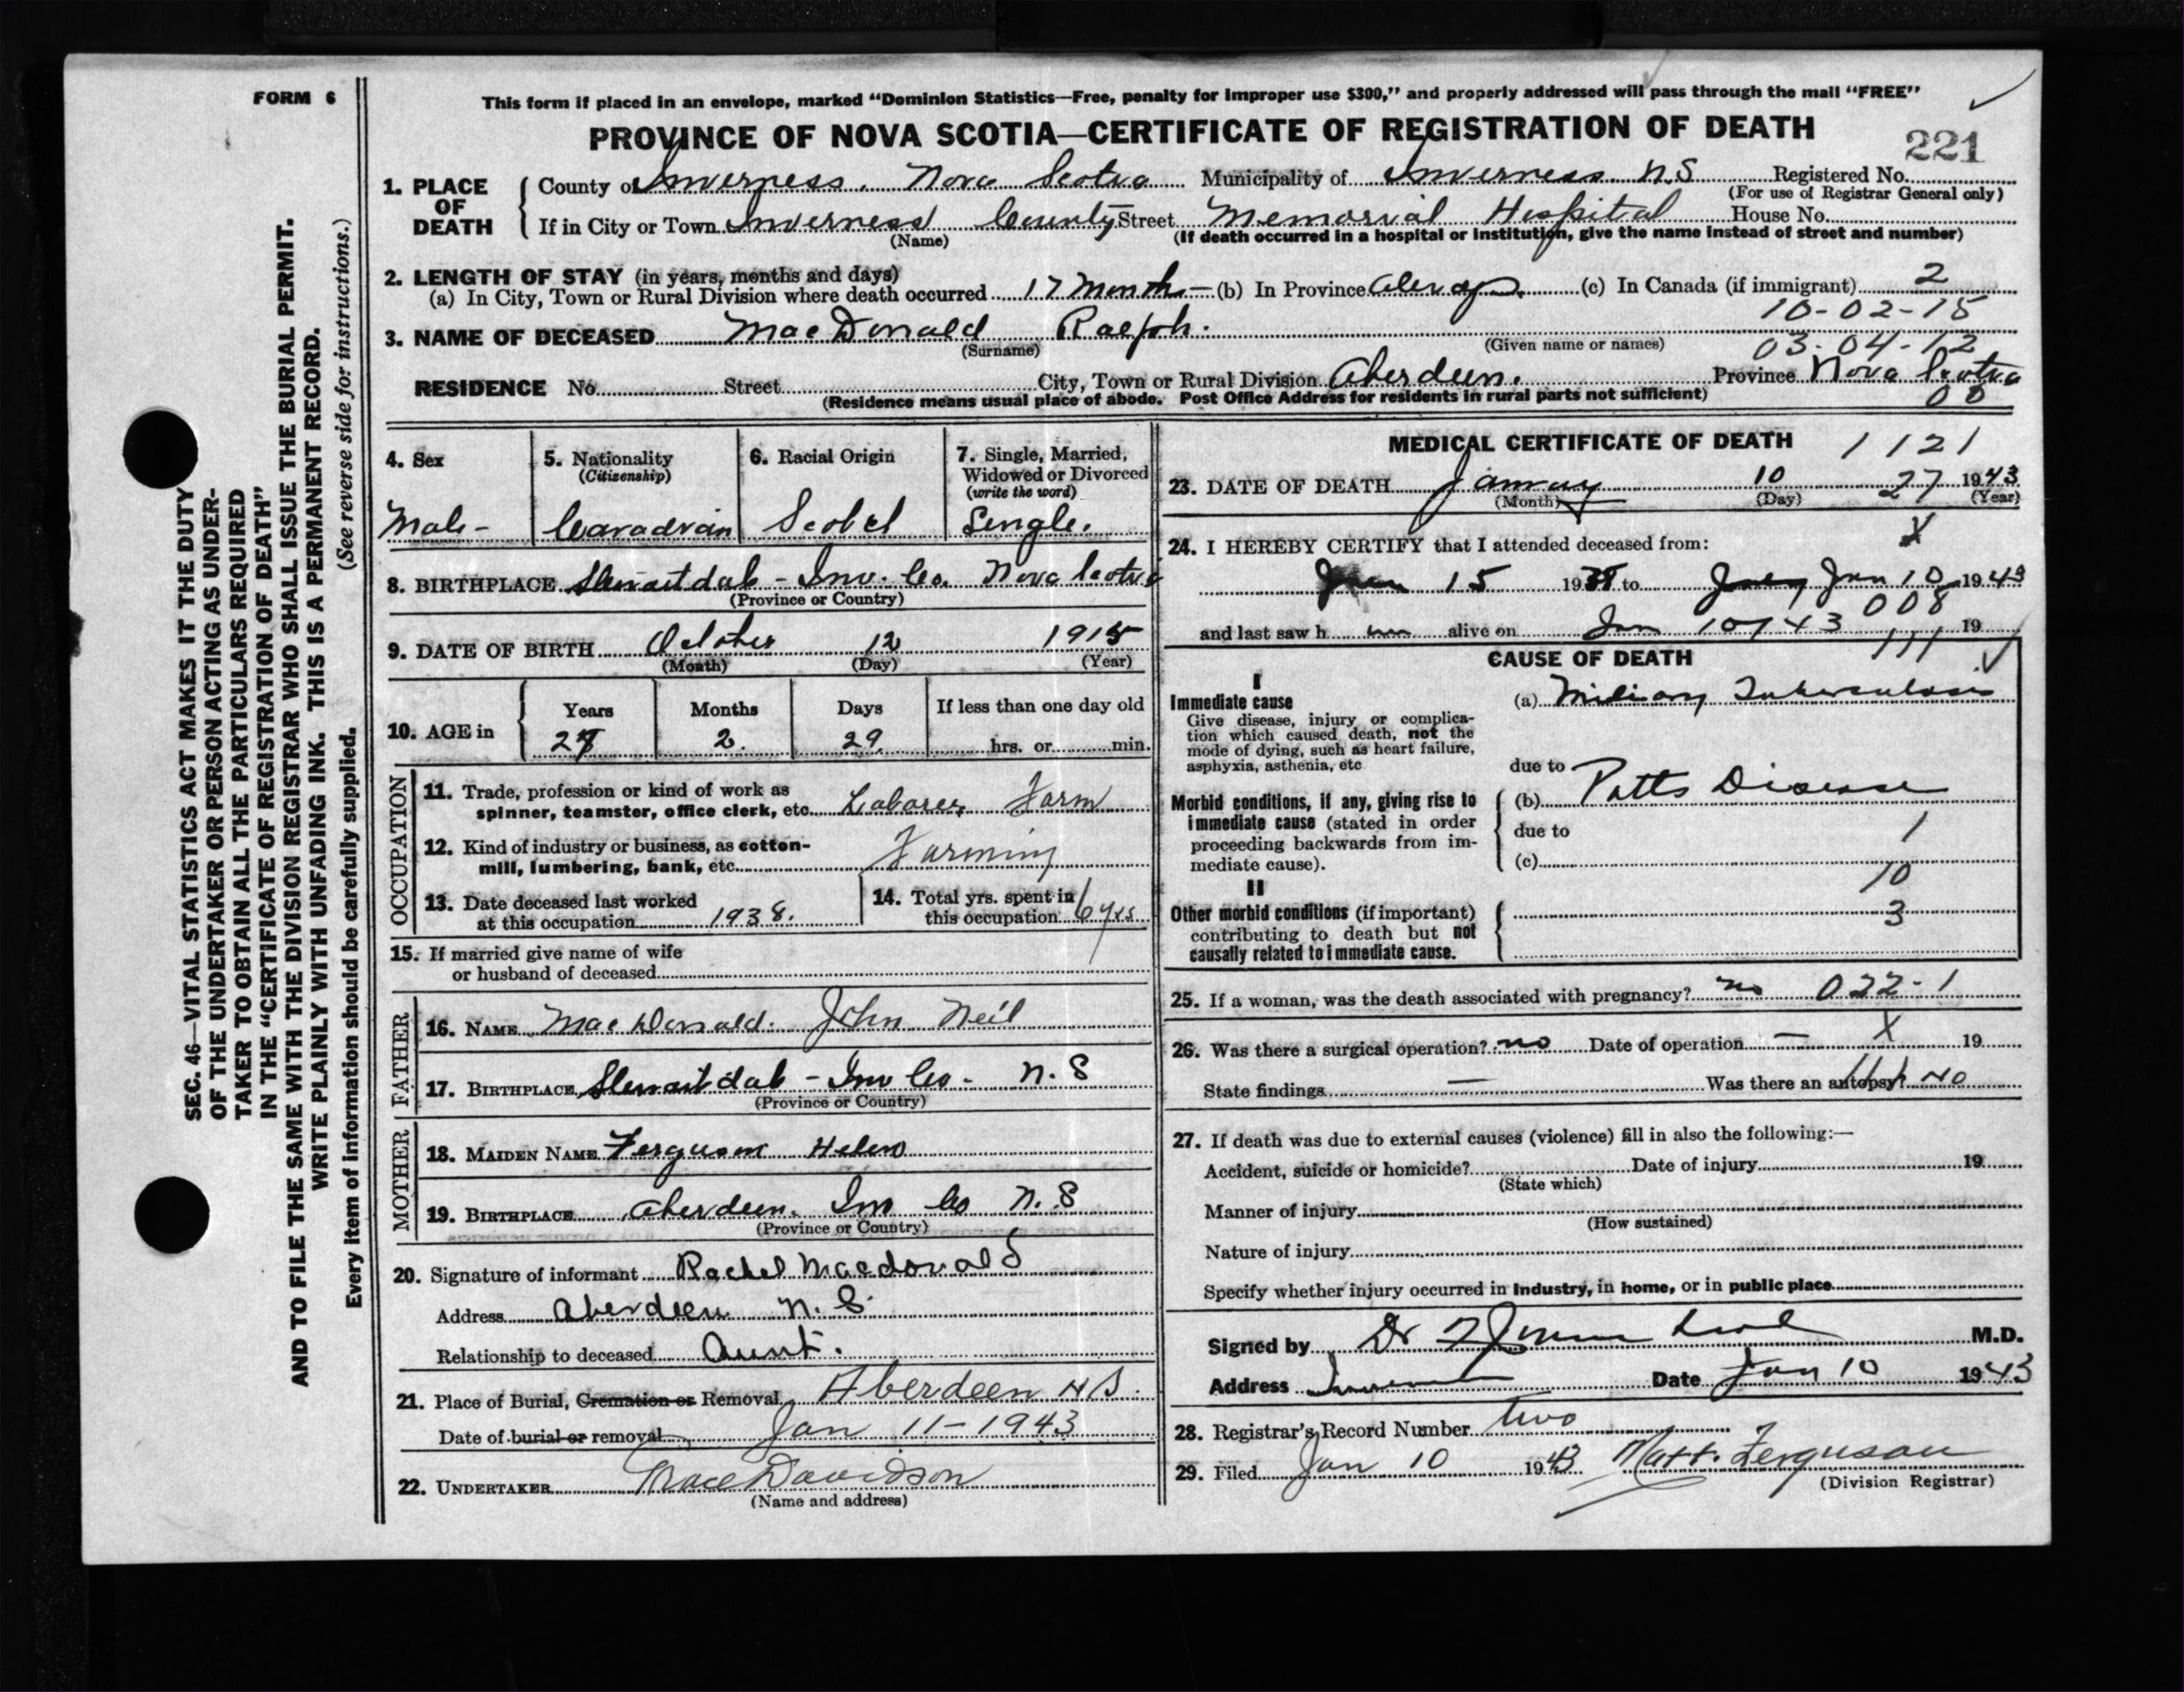 FORM 6
This form if placed in an envelope, marked “Dominion Statistics—Free, penalty for improper use $300,” and properly addressed will pass through the mail “FREE”
PROVINCE OF NOVA SCOTIA—CERTIFICATE OF REGISTRATION OF DEATH
221
1. PLACE OF DEATH
County of Inverness. Nova Scotia Municipality of Inverness N.S Registered No.
(For use of Registrar General only)
If in City or Town Inverness County Street Memorial Hospital House No.
(Name) (If death occurred in a hospital or institution, give the name instead of street and number)
2. LENGTH OF STAY (in years, months and days)
(a) In City, Town or Rural Division where death occurred 17 Month — (b) In Province always (c) In Canada (if immigrant) 2
10-02-15
3. NAME OF DECEASED MacDonald Ralph.
(Surname) (Given name or names) 03-04-12
RESIDENCE No. Street City, Town or Rural Division Aberdeen. Province Nova Scotia
(Residence means usual place of abode. Post Office Address for residents in rural parts not sufficient) 08
4. Sex
Male -
5. Nationality
(Citizenship)
Canadian
6. Racial Origin
Scotch
7. Single, Married, Widowed or Divorced
(write the word)
Single.
8. BIRTHPLACE Stewartdale - Inv. Co. Nova Scotia
(Province or Country)
9. DATE OF BIRTH October 12 1915
(Month) (Day) (Year)
10. AGE in
Years Months Days If less than one day old
27 2. 29. hrs. or min.
OCCUPATION
11. Trade, profession or kind of work as
spinner, teamster, office clerk, etc. Laborer Farm
12. Kind of industry or business, as cotton-
mill, lumbering, bank, etc. Farming
13. Date deceased last worked
at this occupation 1938.
14. Total yrs. spent in
this occupation 6 yrs
15. If married give name of wife
or husband of deceased
FATHER
16. NAME MacDonald. John Neil
17. BIRTHPLACE Stewartdale - Inv Co. N.S
(Province or Country)
MOTHER
18. MAIDEN NAME Ferguson Helen
19. BIRTHPLACE Aberdeen. Inv Co N.S
(Province or Country)
20. Signature of informant Rachel Macdonald
Address Aberdeen N.S.
Relationship to deceased Aunt.
21. Place of Burial, Cremation or Removal Aberdeen N S.
Date of burial or removal Jan 11-1943
22. UNDERTAKER Mace Davidson
(Name and address)
MEDICAL CERTIFICATE OF DEATH 1121
23. DATE OF DEATH January 10 27 1943
(Month) (Day) (Year)
X
24. I HEREBY CERTIFY that I attended deceased from:
15 1938 to Jan 10 1943
008
and last saw h im alive on Jan 10/43 19
CAUSE OF DEATH 111
I
Immediate cause
Give disease, injury or complica-
tion which caused death, not the
mode of dying, such as heart failure,
asphyxia, asthenia, etc
(a) Miliary Tuberculosis
due to
Morbid conditions, if any, giving rise to
immediate cause (stated in order
proceeding backwards from im-
mediate cause).
(b) Potts Disease
due to 1
(c)
10
II
Other morbid conditions (if important)
contributing to death but not
causally related to immediate cause.
3
25. If a woman, was the death associated with pregnancy? no 022-1
26. Was there a surgical operation? no Date of operation — X 19
State findings — Was there an autopsy? No
27. If death was due to external causes (violence) fill in also the following:—
Accident, suicide or homicide? Date of injury 19
(State which)
Manner of injury
(How sustained)
Nature of injury
Specify whether injury occurred in industry, in home, or in public place
Signed by Dr M.D.
Address Inverness Date Jan 10 1943
28. Registrar's Record Number two
29. Filed Jan 10 1943 Matt. Ferguson
(Division Registrar)
SEC. 46—VITAL STATISTICS ACT MAKES IT THE DUTY
OF THE UNDERTAKER OR PERSON ACTING AS UNDER-
TAKER TO OBTAIN ALL THE PARTICULARS REQUIRED
IN THE “CERTIFICATE OF REGISTRATION OF DEATH”
AND TO FILE THE SAME WITH THE DIVISION REGISTRAR WHO SHALL ISSUE THE BURIAL PERMIT.
WRITE PLAINLY WITH UNFADING INK. THIS IS A PERMANENT RECORD.
Every item of information should be carefully supplied. (See reverse side for instructions.)